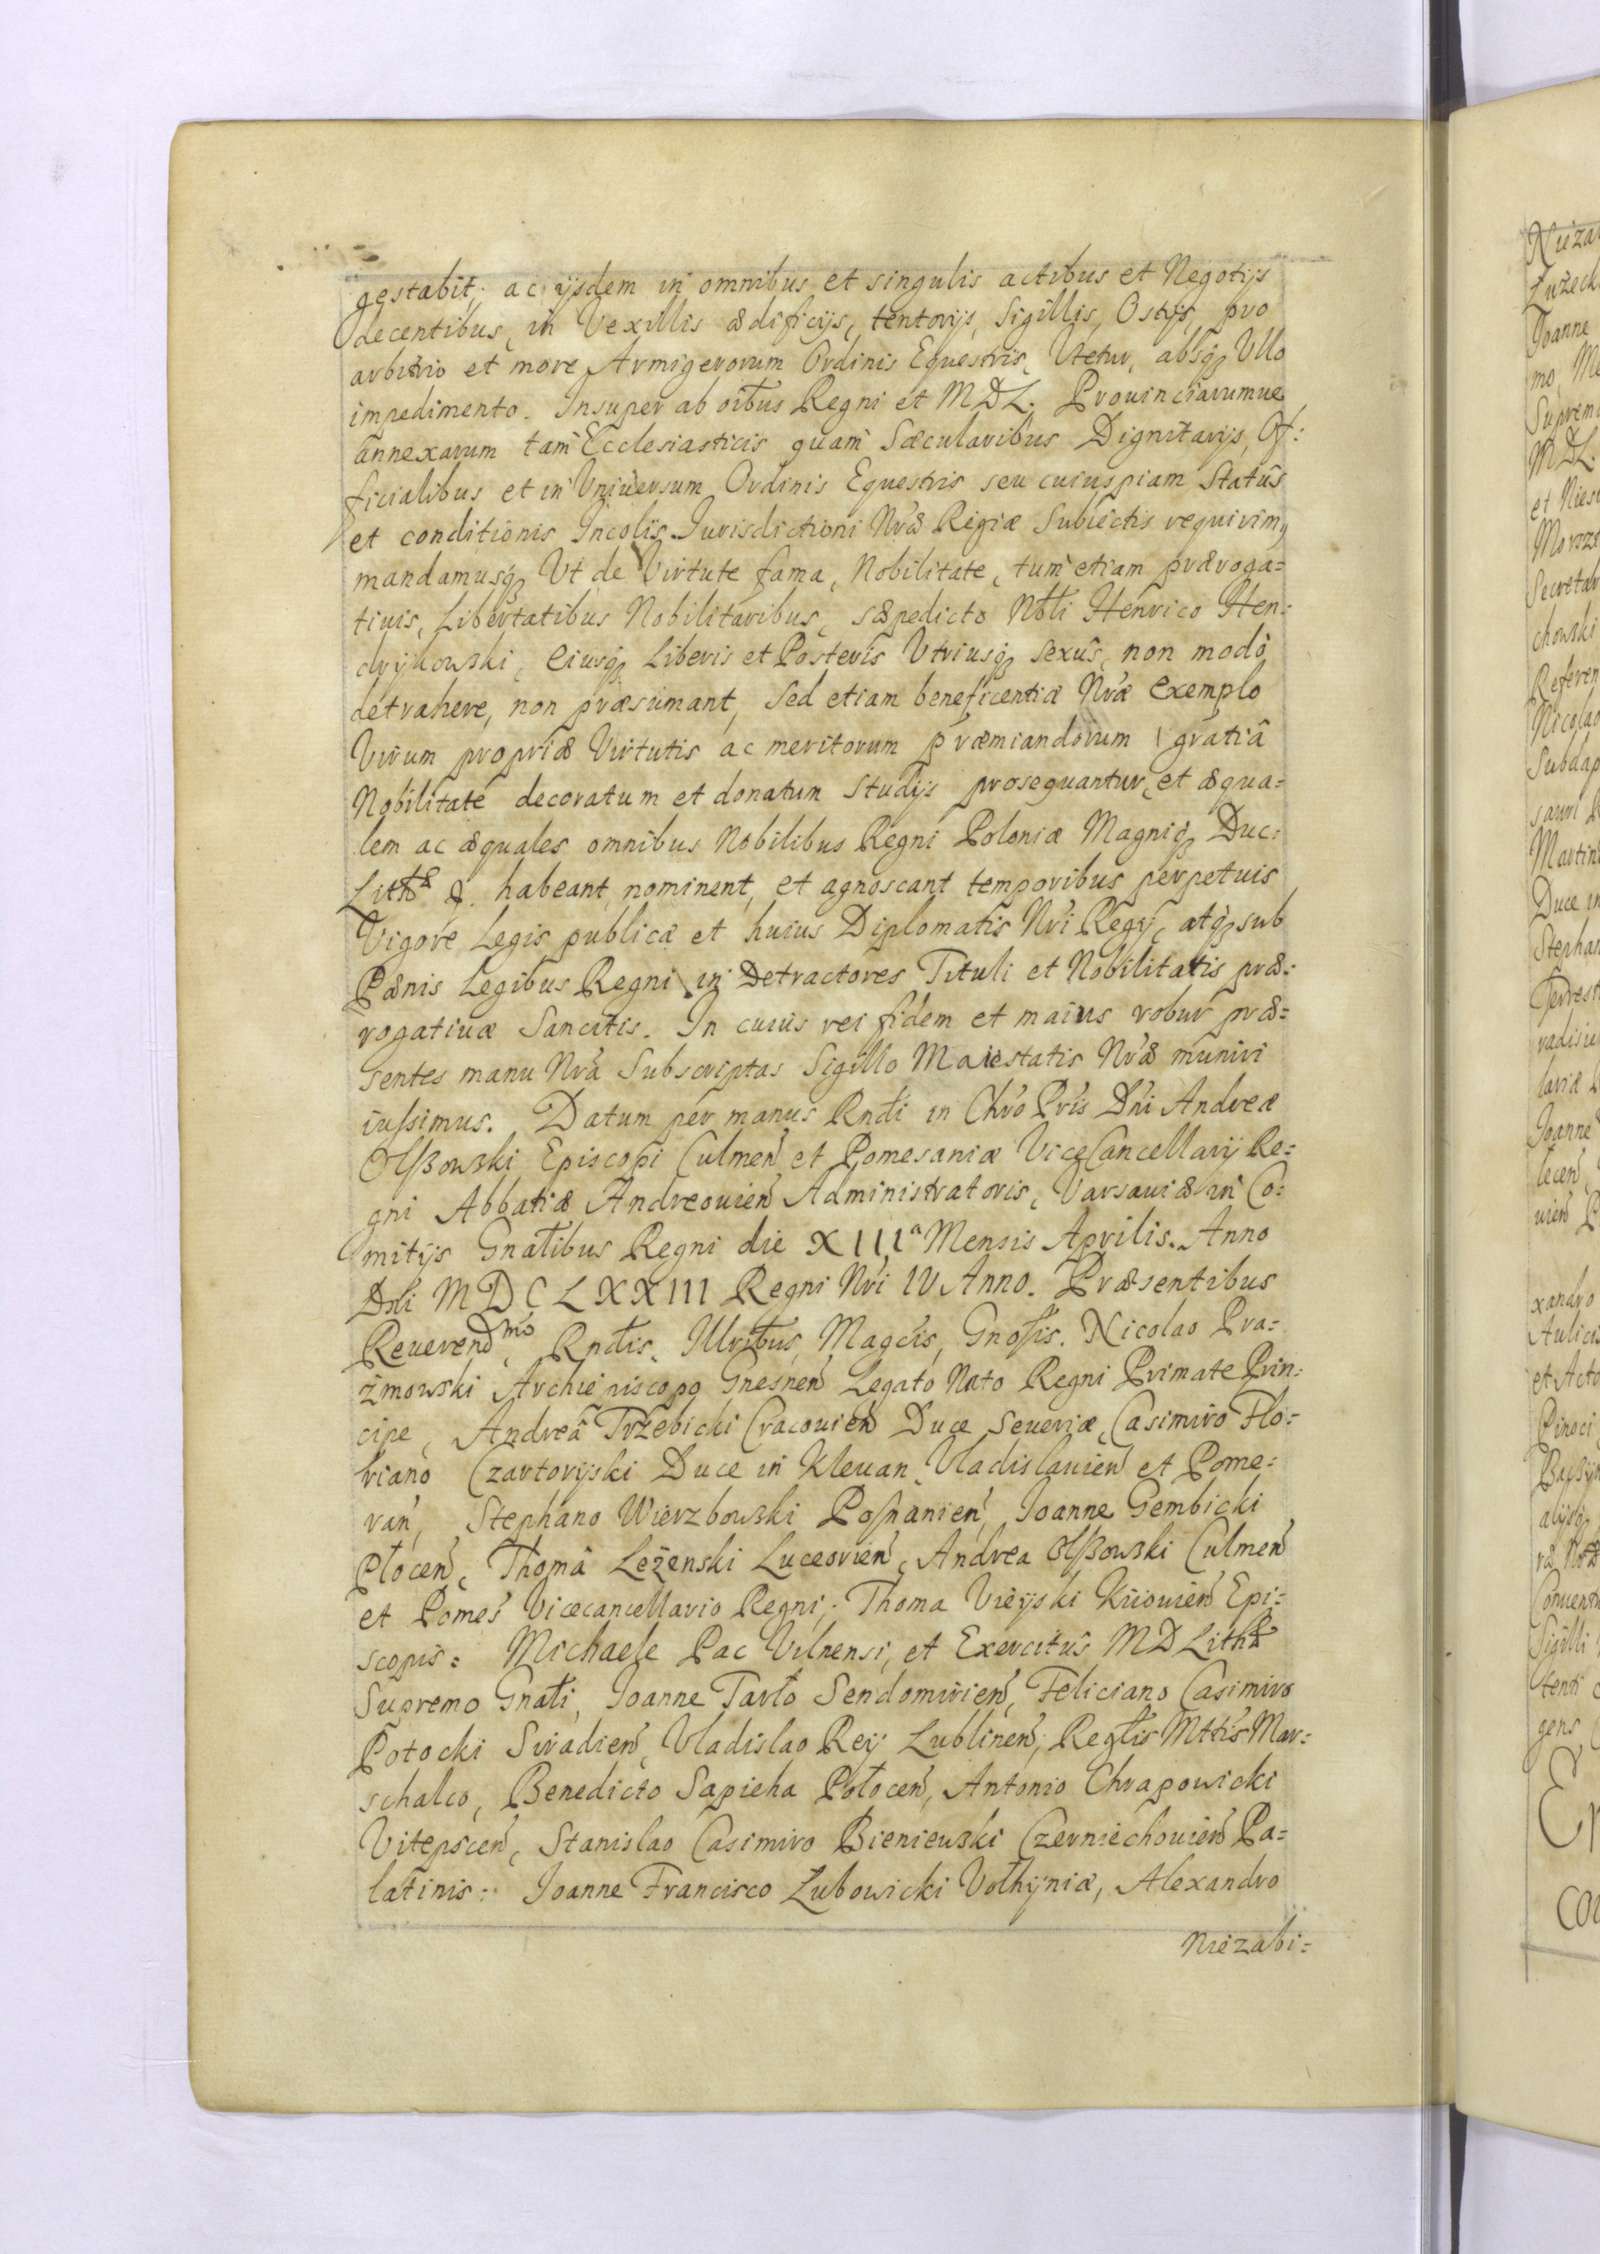 gestabit, ac ijsdem in omnibus et singulis actibus et Negotijs
decentibus, in Vexillis ædificijs, tentorijs, Sigillis, Ostijs, pro
arbitrio et more Armigerorum Ordinis Equestris, Vtetur, absq Vllo
impedimento. Insuper ab oibus Regni et MDL. Prouinciarumue
annexarum tam Ecclesiasticis quam Sæcularibus Dignitarijs, Of:
ficialibus et in Vniuersum Ordinis Equestris seu cuiuspiam Statûs
et conditionis Incolis Iurisdictioni Nræ Regiæ Subiectis requirim9
mandamusq Vt de Virtute fama, Nobilitate, tum etiam præroga=
tiuis, Libertatibus Nobilitaribus, sæpedicto Nbli Henrico Hen:
drykowski, Eiusq Liberis et Posteris Vtriusq Sexûs, non modò
detrahere, non præsumant, Sed etiam beneficentiæ Nræ exemplo
Virum propriæ Virtutis ac meritorum præmiandorum gratiâ
Nobilitate decoratum et donatum Studijs prosequantur, et æqua=
lem ac æquales omnibus Nobilibus Regni Poloniæ Magniq Duc:
Lithæ habeant, nominent, et agnoscant temporibus perpetuis
Vigore Legis publicæ et huius Diplomatis Nri Regij, atq sub
Pænis Legibus Regni in Detractores Tituli et Nobilitatis præ:
rogatiuæ Sancitis. In cuius rei fidem et maius robur præ=
sentes manu Nra Subscriptas Sigillo Maiestatis Nræ muniri
iussimus. Datum per manus Rndi in Chro Pris Dni Andreæ
Olßowski Episcopi Culmen et Pomesaniæ ViceCancellarij Re=
gni Abbatiæ Andreouien Administratoris, Varsauiæ in Co=
mitijs Gnalibus Regni die XIIIa Mensis Aprilis. Anno
Dni MDCLXXIII Regni Nri IV Anno. Præsentibus
Reuerendmo, Rndis, Illribus, Magcis, Gnosis. Nicolao Pra=
żmowski Archiepiscopo Gnesnen Legato Nato Regni Primate Prin:
cipe, Andreâ Trzebicki Cracouien Duce Seueriæ, Casimiro Flo=
riano Czartoryski Duce in Kleuan Vladislauien et Pome=
ran, Stephano Wierzbowski Posnanien, Ioanne Gembicki
Płocen, Thomâ Leżenski Luceorien, Andrea Olßowski Culmen
et Pomes Vicecancellario Regni, Thoma Vieyski Kiiouien Epi=
scopis: Michaele Pac Vilnensi, et Exercitûs MDLithæ
Supremo Gnali, Ioanne Tarło Sendomirien, Feliciano Casimiro
Potocki Siradien, Vladislao Rey Lublinen, Reglis Mttis Mar=
schalco, Benedicto Sapieha Połocen, Antonio Chrapowicki
Vitepscen, Stanislao Casimiro Bieniewski Czerniechouien Pa=
latinis: Ioanne Francisco Lubowicki Volhyniæ, Alexandro
Niezabi=